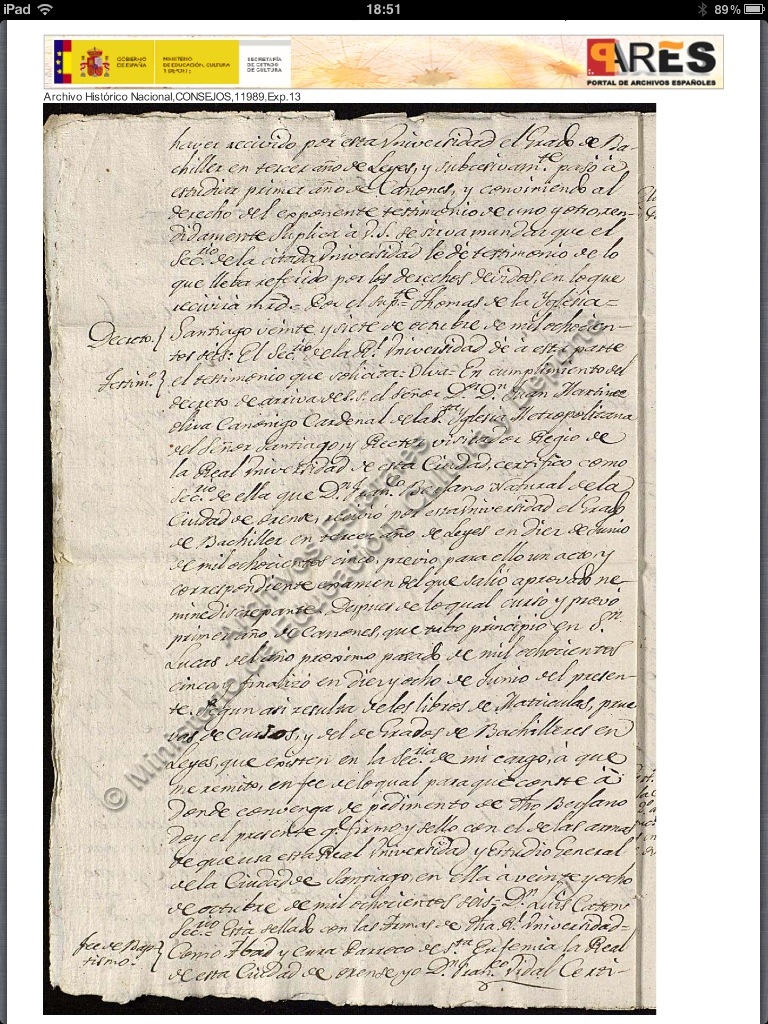 iPad 18:51 89%
GOBIERNO DE ESPAÑA
MINISTERIO DE EDUCACIÓN, CULTURA Y DEPORTE
SECRETARÍA DE ESTADO DE CULTURA
PARES
PORTAL DE ARCHIVOS ESPAÑOLES
Archivo Histórico Nacional,CONSEJOS,11989,Exp.13
haver recivido por esta Universidad el Grado de Ba-
chiller en tercer año de Leyes, y subcesivamte. pasó à
estudiar primer año de Canones, y conviniendo al
derecho del exponente testimonio de uno y otro, ren-
didamente Suplica à V.S. se sirva mandar que el
Secrio. de la citada Universidad le dé testimonio de lo
que lleba referido por los derechos devidos, en lo que
recivirà mrd.= Por el supte. Thomas de la Yglesia=
Decreto. Santiago veinte y siete de octubre de mil ochocien-
tos seis: El Secrio. de la Rl. Universidad dé à esta parte
Testimo. el testimonio que solicita= Oliva= En cumplimiento del
decreto de arriva del S. el Señor Dr. Dn. Juan Martinez
Oliva Canonigo Cardenal de la Sta. Yglesia Metropolitana
del Señor Santiago, y Rector visitador Regio de
la Real Universidad de esta Ciudad, certifico como
Secrio. de ella que Dn. Franco. Natural de la
Ciudad de Orense, recivió por esta Universidad el Grado
de Bachiller en tercer año de Leyes en diez de Junio
de mil ochocientos cinco, previo para ello un acto, y
correspondiente examen del que salió aprovado ne-
mine discrepante. Despues de lo qual cursó y provó
primer año de Canones, que tubo principio en Sn.
Lucas del año proximo pasado de mil ochocientos
cinco, y finalizó en diez y ocho de Junio del presen-
te. Segun asi resulta de los libros de Matriculas, prue-
vas de Cursos, y del de Grados de Bachilleres en
Leyes, que existen en la Secria. de mi cargo, à que
me remito, en fee de lo qual para que conste à
donde convenga de pedimento de dho
doy el presente qe. firmo y sello con el de las armas
de que usa esta Real Universidad y Estudio General
de la Ciudad de Santiago, en ella à veinte y ocho
de octubre de mil ochocientos seis= Dn. Luis
Secrio.= Está sellado con las Armas de dha Rl. Universidad=
fee de Bap-
tismo. Como Abad y Cura Parroco de Sta. Eufemia la Real
de esta Ciudad de Orense yo Dn. Franco. Vidal Certi-
© Ministerio de Educación, Cultura y Deporte
Archivos Estatales